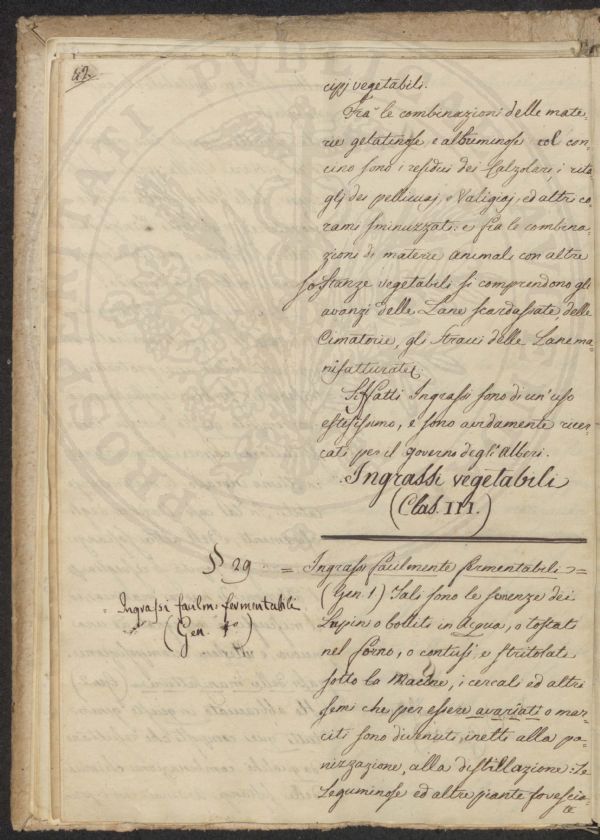 42
cipj vegetabili.
Fra le combinazioni delle mate=
rie gelatinose e albuminose col con=
cino sono i residui dei Calzolari, i rita
glj dei pellicciaj, o Valigiaj, ed altri co=
rami sminuzzati: e fra le combina=
zioni di materie animali con altre
sostanze vegetabili si comprendono gli
avanzi delle Lane scardassate, delle
Cimatorie, gli stracci delle Lane ma=
nifatturate.
Siffatti Ingrassi sono di un'uso
estesissimo, e sono avidamente ricer=
cati per il governo degli Alberi.
Ingrassi vegetabili
(Clas. III.)
§ 29.
= Ingrassi facilm: fermentabili
(Gen. 1°)
= Ingrassi facilmente fermentabili =
(Gen. 1) Tali sono le semenze dei
Lupini o bolliti in Acqua, o tostati
nel forno, o contusi e stritolati
sotto la Macine, i cereali ed altri
semi che per essere avariati o mar=
citi sono divenuti inetti alla pa=
nizzazione, alla distillazione: Le
Leguminose ed altre piante fovescia=
te
PUBLI